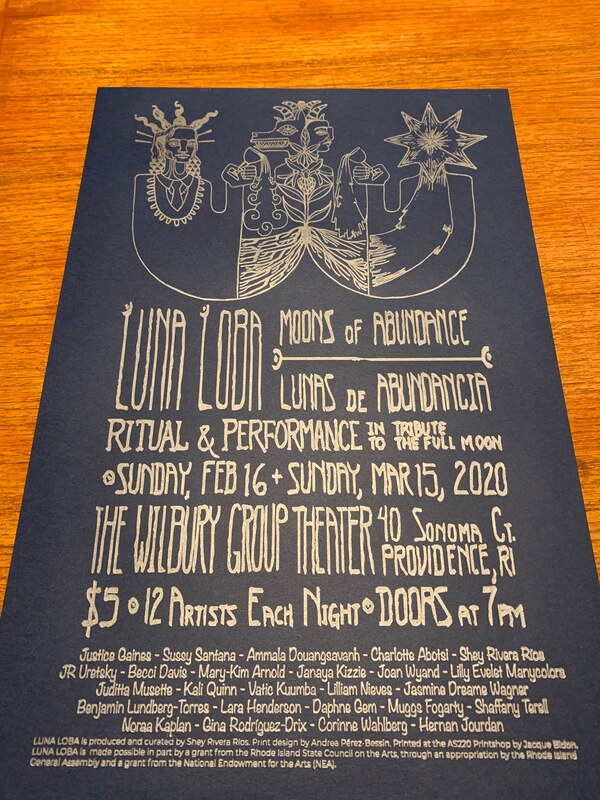 LUNA LOBA
MOONS OF ABUNDANCE
LUNAS DE ABUNDANCIA
RITUAL & PERFORMANCE IN TRIBUTE TO THE FULL MOON
SUNDAY, FEB 16 + SUNDAY, MAR 15, 2020
THE WILBURY GROUP THEATER 40 SONOMA CT. PROVIDENCE, RI
$5 • 12 ARTISTS EACH NIGHT • DOORS AT 7PM
Justice Gaines - Sussy Santana - Ammala Douangsavanh - Charlotte Abotsi - Shey Rivera Ríos
JR Uretsky - Becci Davis - Mary-Kim Arnold - Janaya Kizzie - Joan Wyand - Lilly Evelet Manycolors
Juditta Musette - Kali Quinn - Vatic Kuumba - Lilliam Nieves - Jasmine Dreame Wagner
Benjamin Lundberg-Torres - Lara Henderson - Daphne Gem - Muggs Fogarty - Shaffany Terell
Noraa Kaplan - Gina Rodríguez-Drix - Corinne Wahlberg - Hernan Jourdan
LUNA LOBA is produced and curated by Shey Rivera Ríos. Print design by Andrea Pérez-Bessin. Printed at the AS220 Printshop by Jacque Bidon.
LUNA LOBA is made possible in part by a grant from the Rhode Island State Council on the Arts, through an appropriation by the Rhode Island
General Assembly and a grant from the National Endowment for the Arts (NEA).